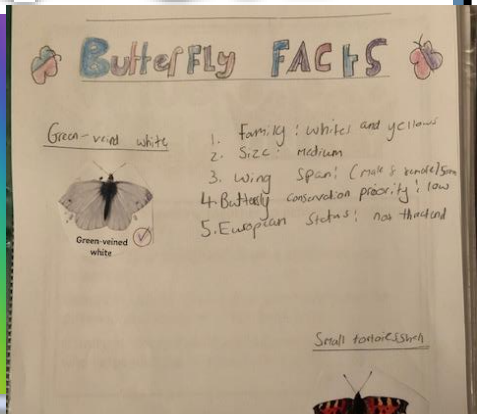 ButterFLy FACtS
Green-veind white
1. Family: whites and yellows
2. Size: medium
3. wing span: (male & female) 5cm
4. Butterfly conservation priority: low
5. European status: not
Green-veined
white
Small